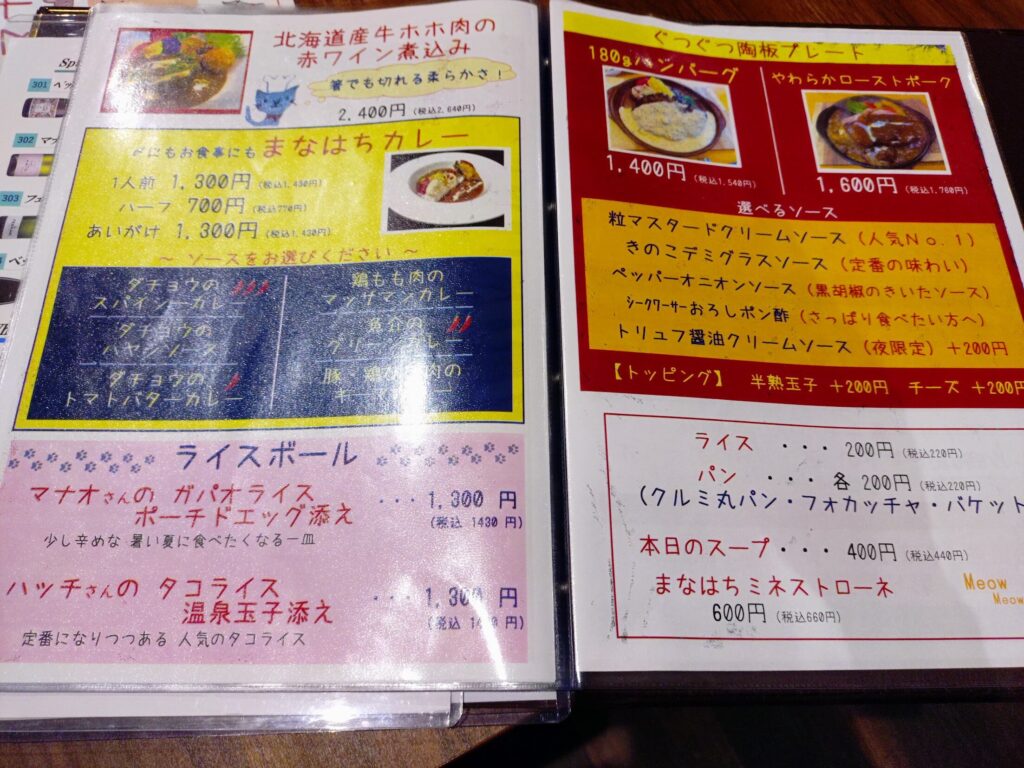 301
302
303
北海道産牛ホホ肉の
赤ワイン煮込み
箸でも切れる柔らかさ！
2,400円（税込2,640円）
〆にもお食事にも まなはちカレー
1人前 1,300円（税込1,430円）
ハーフ 700円（税込770円）
あいがけ 1,300円（税込1,430円）
～ ソースをお選びください ～
ダチョウの
スパイシーカレー
ダチョウの
ハヤシソース
ダチョウの
トマトバターカレー
鶏もも肉の
マッサマンカレー
魚介の
グリーンカレー
豚・鶏
ライスボール
マナオさんの ガパオライス
ポーチドエッグ添え
・・・1,300 円
（税込 1430 円）
少し辛めな 暑い夏に食べたくなる一皿
ハッチさんの タコライス
温泉玉子添え
・・・1,300 円
定番になりつつある 人気のタコライス
ぐつぐつ陶板プレート
180gハンバーグ
1,400円（税込1,540円）
やわらかローストポーク
1,600円（税込1,760円）
選べるソース
粒マスタードクリームソース（人気No.1）
きのこデミグラスソース（定番の味わい）
ペッパーオニオンソース（黒胡椒のきいたソース）
シークワーサーおろしポン酢（さっぱり食べたい方へ）
トリュフ醤油クリームソース（夜限定）＋200円
【トッピング】 半熟玉子 ＋200円 チーズ ＋200円
ライス ・・・ 200円（税込220円）
パン ・・・ 各 200円（税込220円）
（クルミ丸パン・フォカッチャ・バケット
本日のスープ・・・ 400円（税込440円）
まなはち ミネストローネ
600円（税込660円）
Meow
Meow